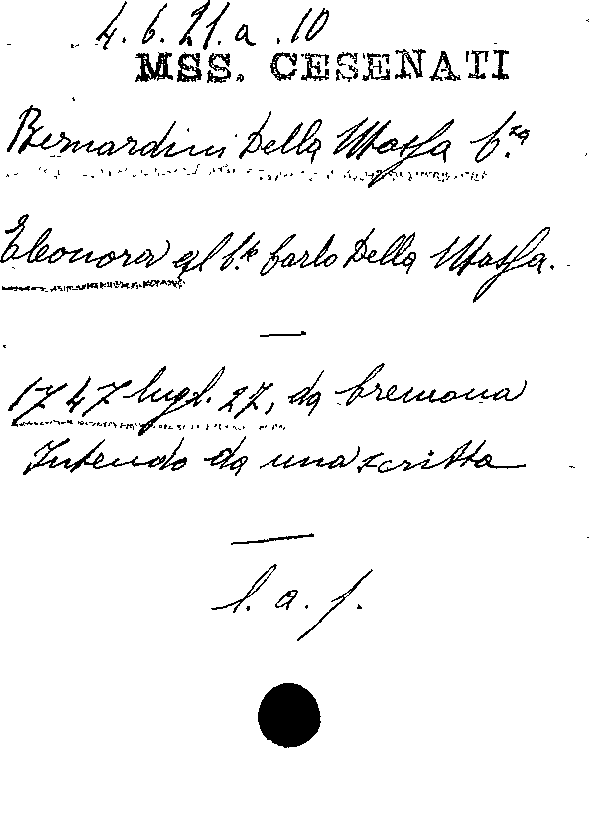 4. 6. 21. a .10
MSS. CESENATI
Bernardini Della Massa C.sa
Eleonora al C.te Carlo Della Massa.
1747 lugl. 27, da Cremona
Intendo da una scritta
l. a. f.